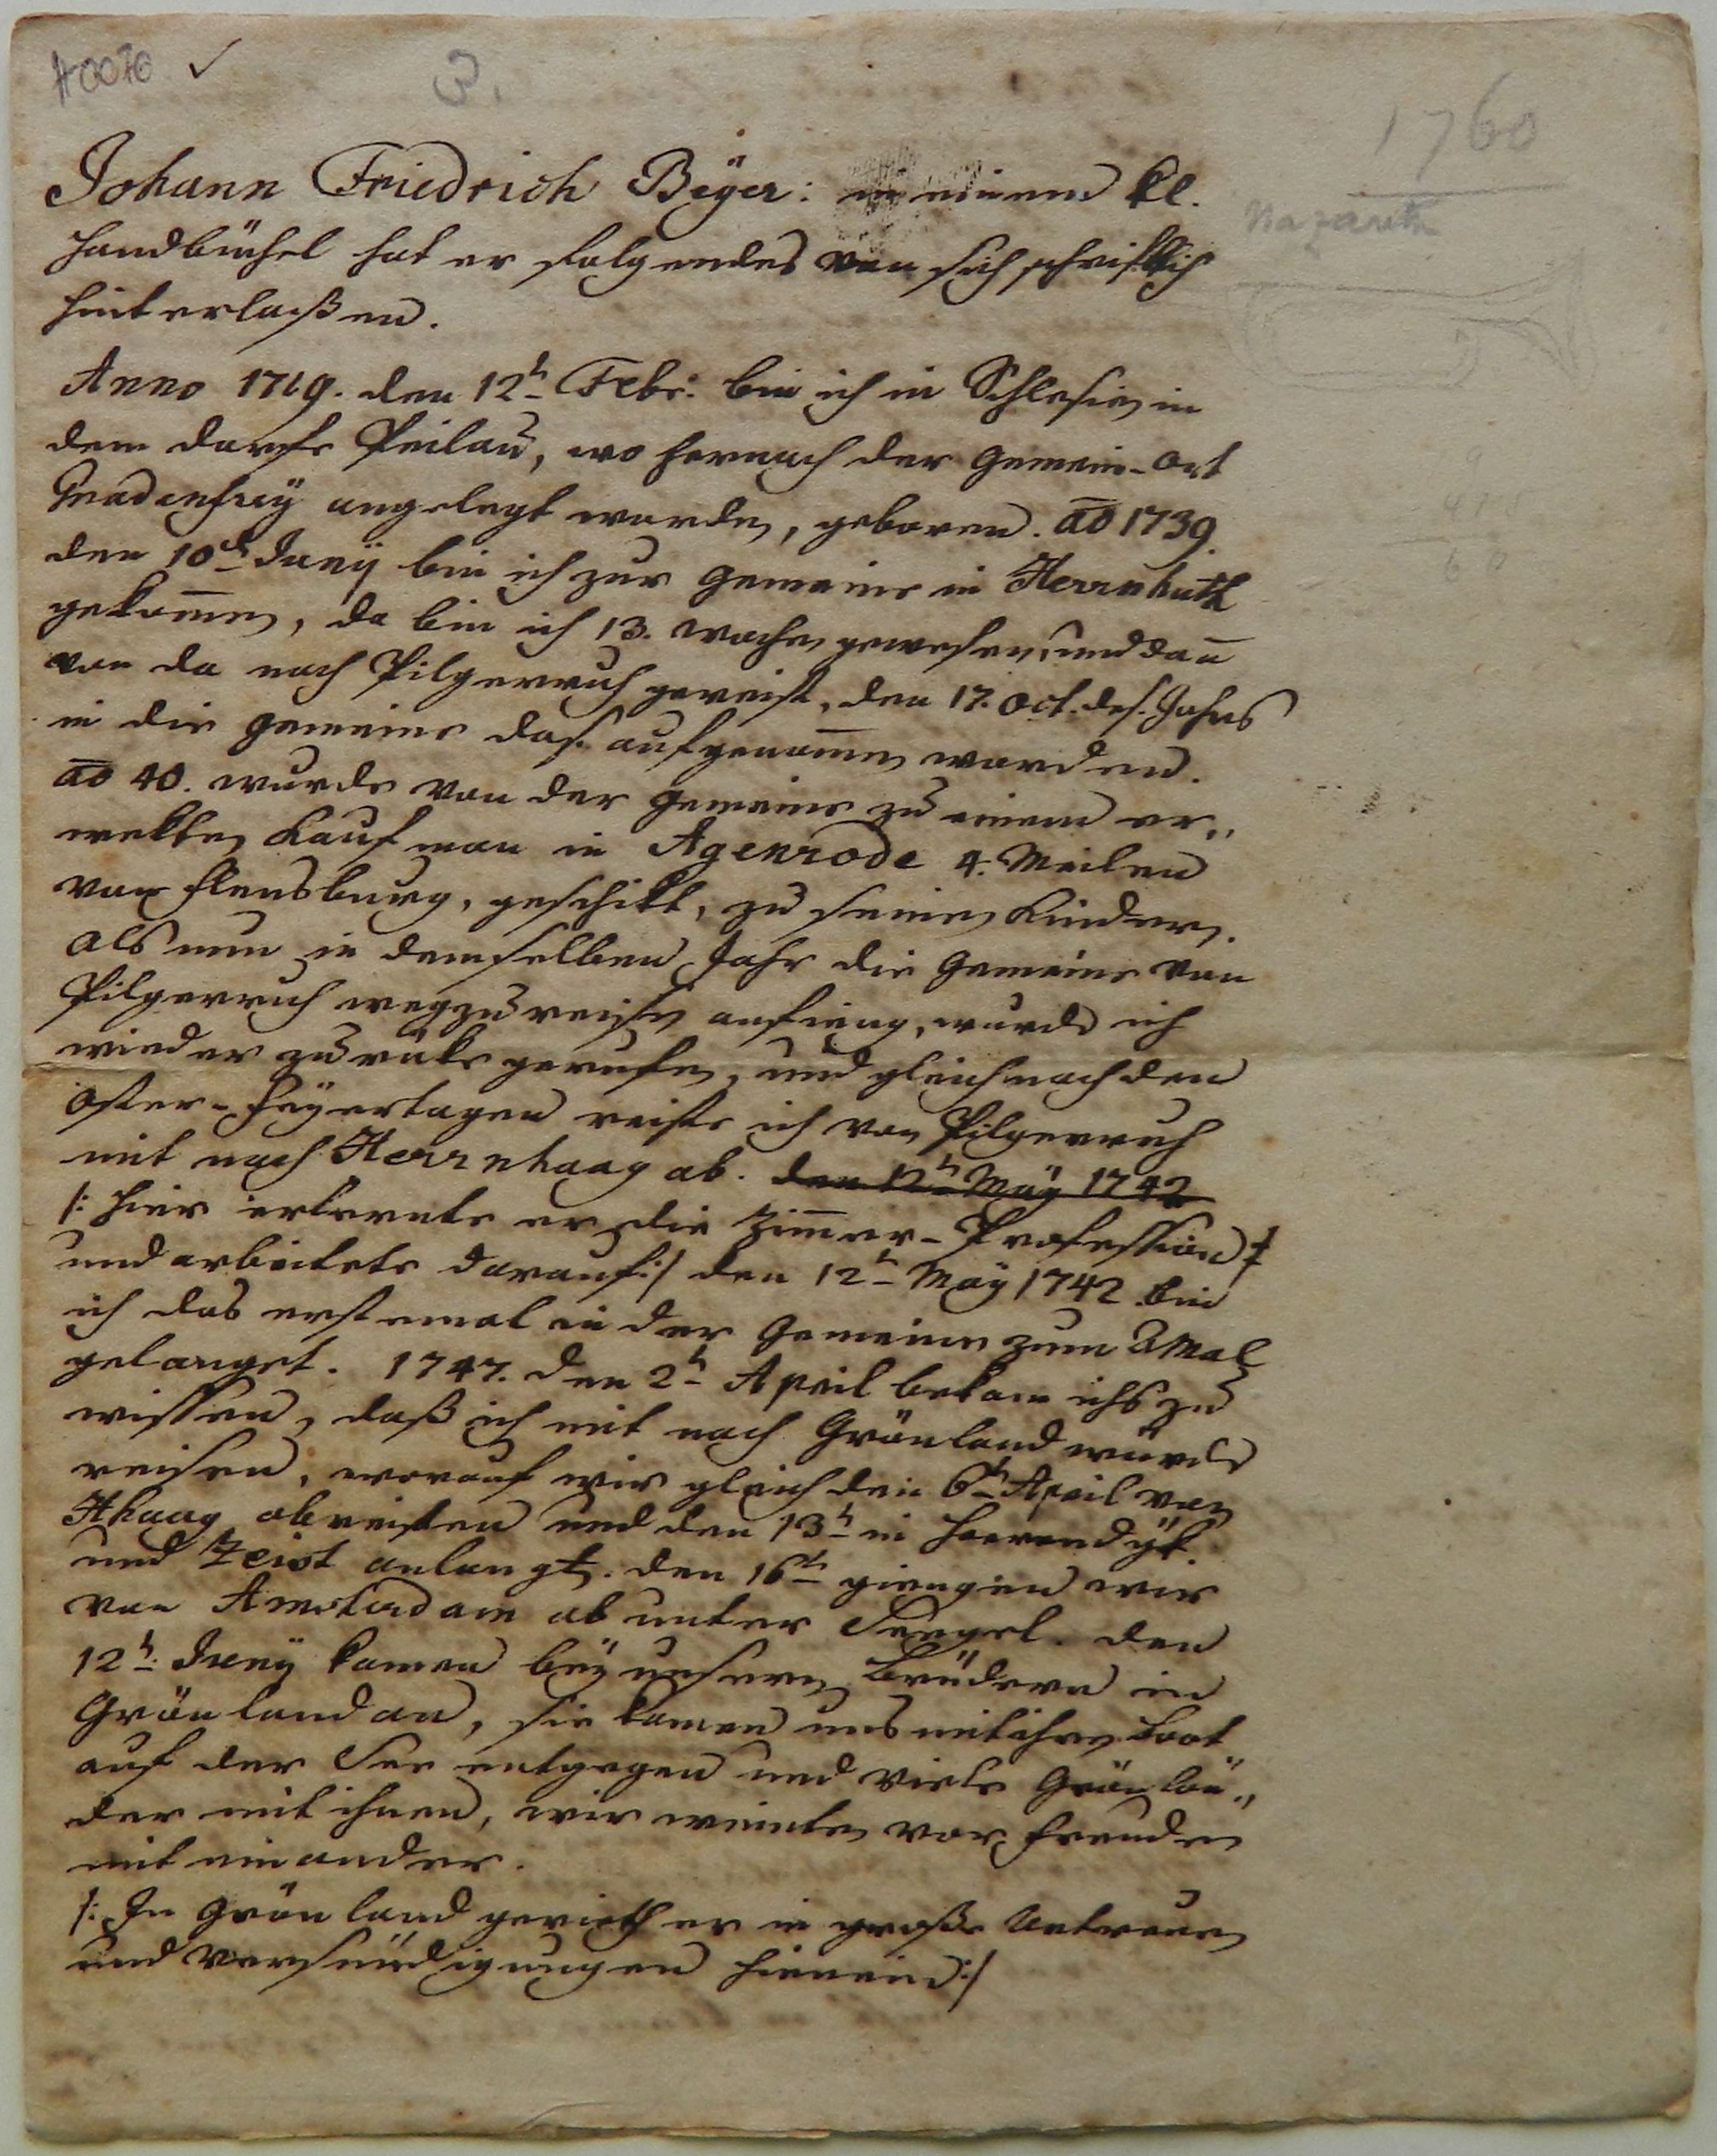 A0070 ✓
3.
1760
Nazareth
Johann Friedrich Beÿer: in einem kl.
Handbüchel hat er folgendes von sich schriftlich
hinterlaßen.
Anno 1719. den 12t Febr: bin ich in Schlesien in
dem Dorfe Peilau, wo hernach der Gemein-Ort
Gnadenfreÿ angelegt worden, geboren. ao 1739.
den 10t Junÿ bin ich zur Gemeine in Herrnhuth
gekom̅en, da bin ich 13. Wochen gewesen, und dan̅
von da nach Pilgerruh gereist, den 17. Oct. des. Jahrs
in die Gemeine das. aufgenom̅en worden.
ao 40. wurde von der Gemeine zu einem er„
wekten Kaufman in Agenrode 4. Meilen
von Flensburg, geschikt, zu seinen Kindern.
Als nun in demselben Jahr die Gemeine von
Pilgerruh wegzureisen anfieng, wurde ich
wieder zurüke gerufen, und gleich nach den
Oster-Feÿertagen reiste ich von Pilgerruh
mit nach Herrnhaag ab. den 12t Maÿ 1742
/: hier erlernte er die Zim̅er-Profession
und arbeitete darauf:/ den 12t Maÿ 1742 bin
ich das erstemal in der Gemeine zum A Mal
gelanget. 1747. den 2t April bekam ichs zu
wissen, daß ich mit nach Grönland würde
reisen, worauf wir gleich den 6t April von
Hhaag abreisten und den 13t in Heerendÿk
und Zeist anlangt. den 16t giengen wir
von Amsterdam ab unter Seegel. den
12t Junÿ kamen beÿ unsern Brüdern in
Grönland an, sie kamen uns mit ihren Boot
auf der See entgegen und viele Grönlän„
der mit ihnen, wir weinten vor Freuden
mit einander.
/: In Grönland gerieth er in große Untreuen
und Versündigungen hinein:/